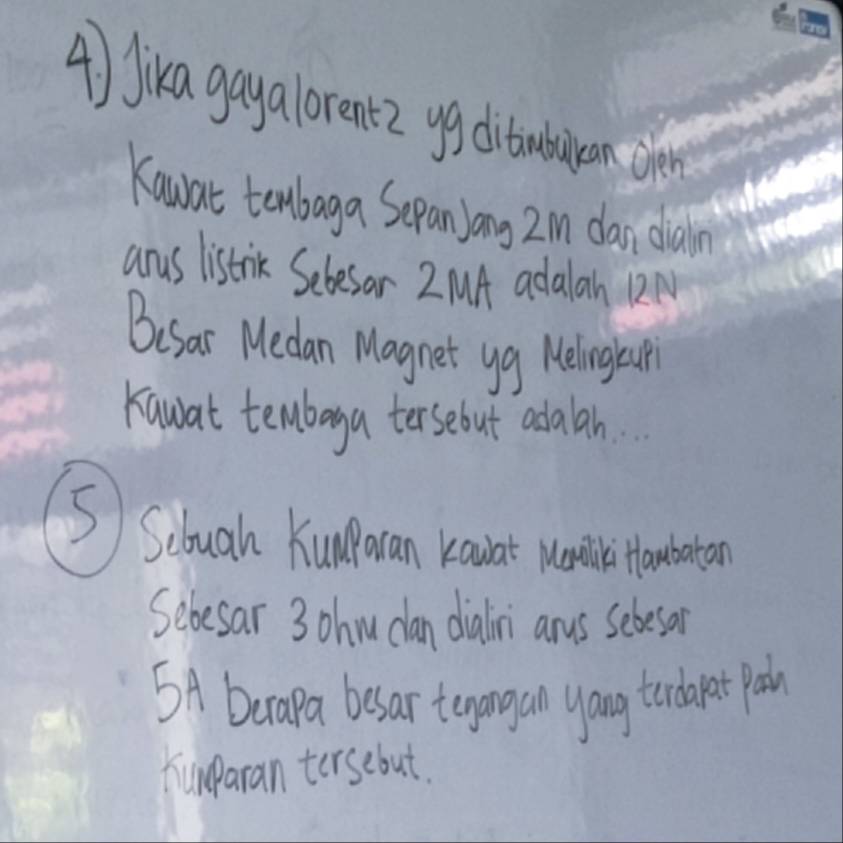 4.) Jika gaya lorentz yg ditimbulkan oleh
Kawat tembaga Sepanjang 2M dan dialiri
arus listrik Sebesar 2MA adalah 12N
Besar Medan Magnet yg Melingkupi
Kawat tembaga tersebut adalah....
5 Sebuah Kumparan kawat Memiliki Hambatan
Sebesar 3 ohm dan dialiri arus sebesar
5A berapa besar tegangan yang terdapat Pada
Kumparan tersebut.